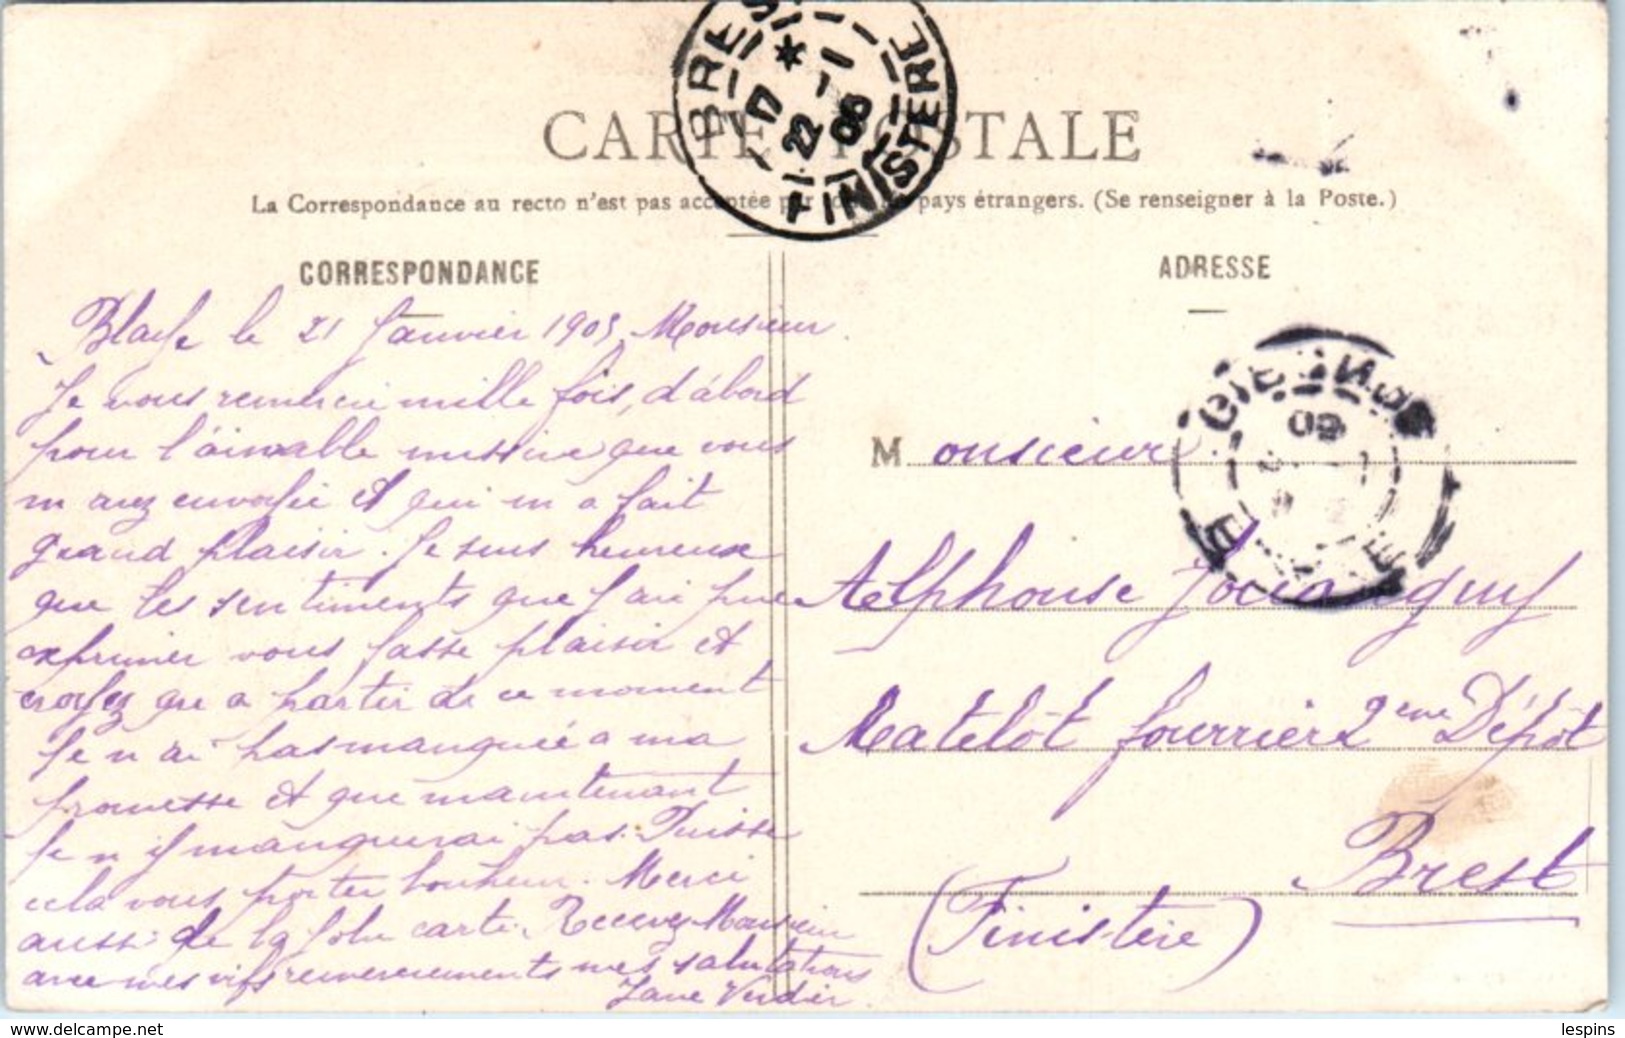 BREST
17
22 - 1
05
FINISTERE
CARTE POSTALE
La Correspondance au recto n'est pas acceptée par tous les pays étrangers. (Se renseigner à la Poste.)
CORRESPONDANCE
Blaye le 21 Janvier 1905 Monsieur
Je vous remercie mille fois, d'abord
pour l'aimable missive que vous
m avez envoyée et qui m a fait
grand plaisir. Je suis heureuse
que les sentiments que j'ai pue
exprimer vous fasse plaisir et
croyez que a partir de ce moment
Je n ai pas manquée a ma
promesse et que maintenant
Je n y manquerai pas. Puisse
cela vous porter bonheur. Merci
aussi de la jolie carte. Recevez Monsieur
avec mes vifs remerciements mes salutations
Jane Verdier
ADRESSE
Monsieur
Alphonse
Matelôt fourrier 2eme Dépôt
Brest
(Finistère)
GIRONDE
05
lespins
www.delcampe.net